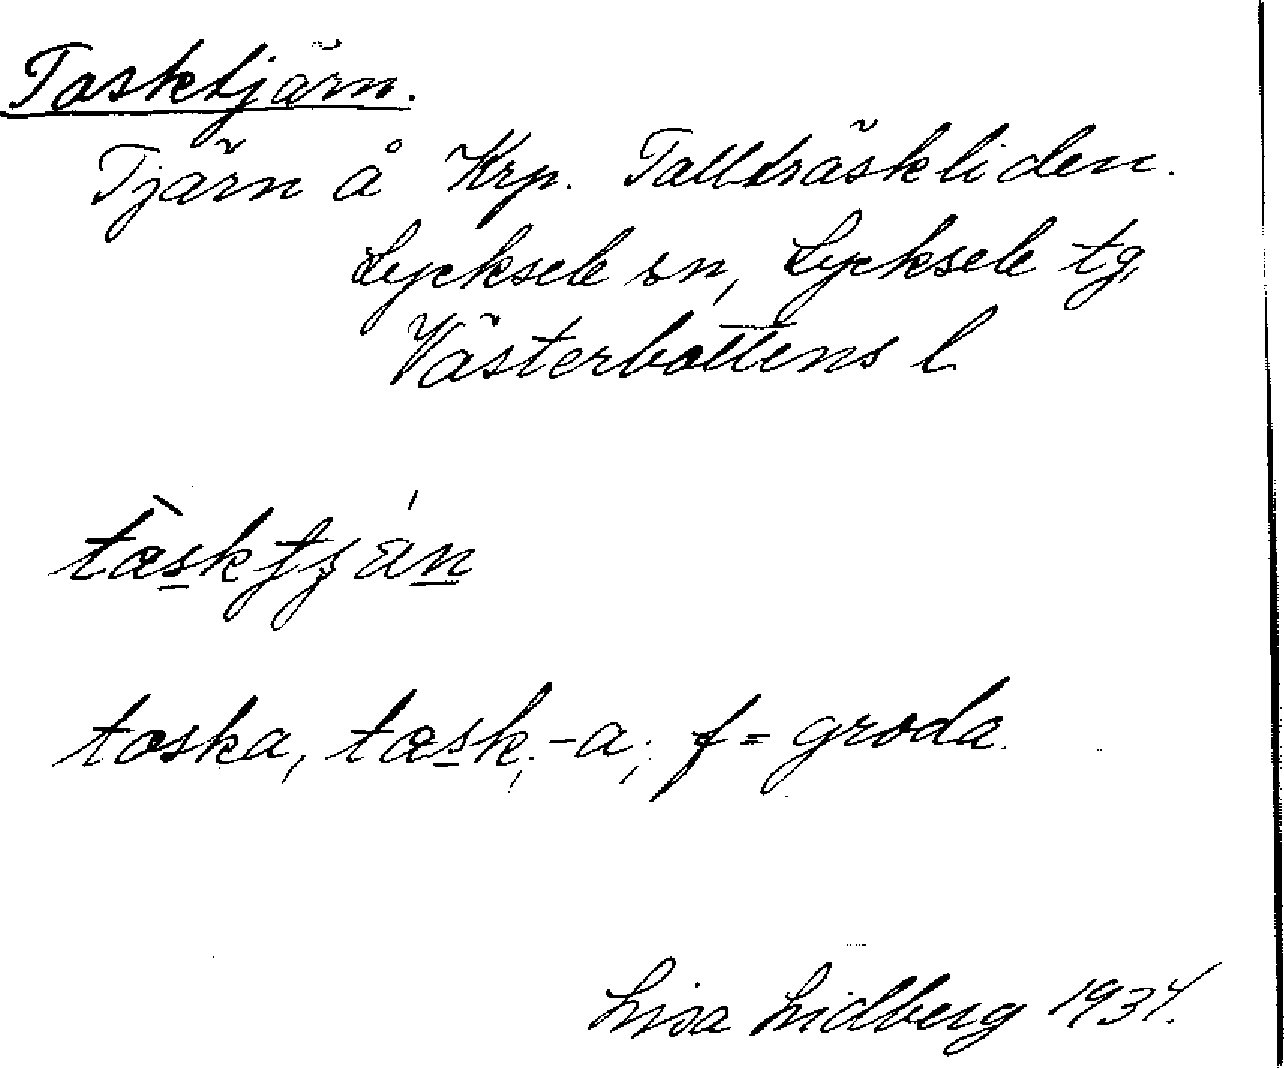 Tosktjärn.
Tjärn å Krp. Tallträskliden.
Lycksele sn, Lycksele tg
Västerbottens l
tœsktjän
toska, tœsk, -a, f = groda.
Lisa Lidberg 1934.